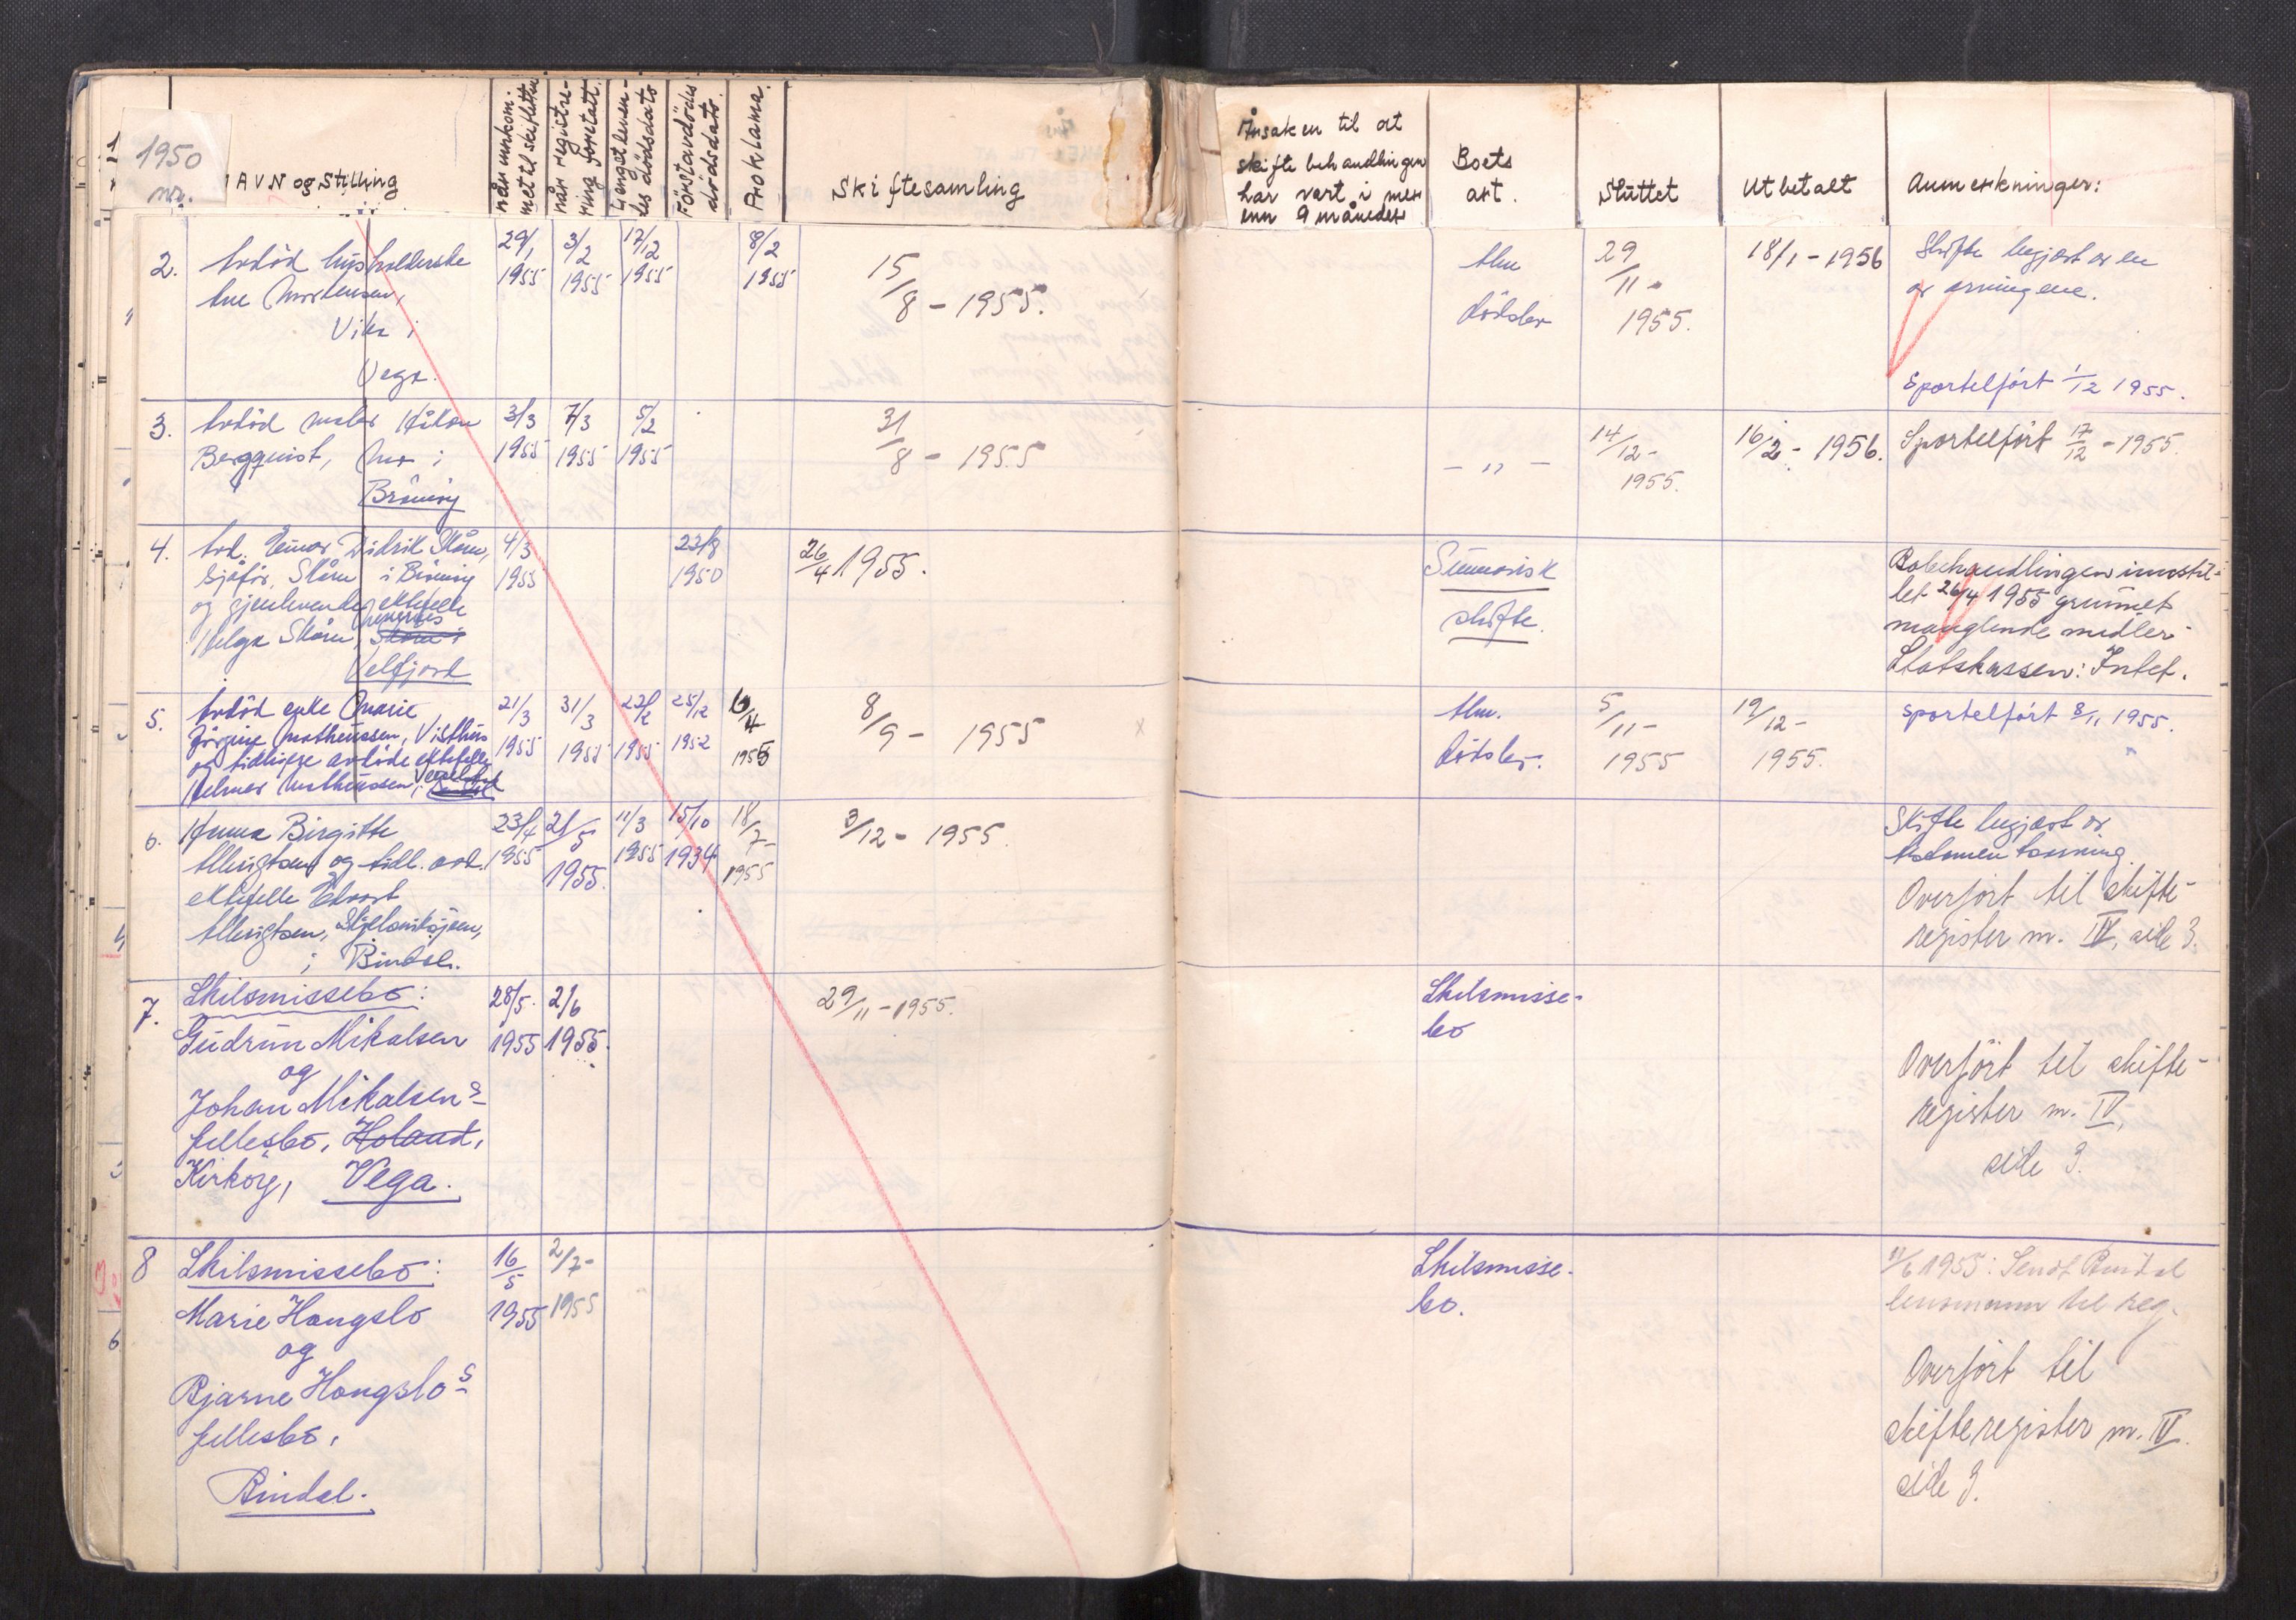 1950
nr.
NAVN og Stilling
når innkom-
met til skifteretten
når registre-
ring foretatt.
Lengstlevен-
des dødsdato
Förstavdödes
dödsdato.
Proklama.
Skiftesamling
Årsaken til at
skiftebehandlingen
har vart i mer
enn 9 måneder
Boets
art.
Sluttet
Utbetalt
Anmerkninger:
2.
Avdöd husholderske
Mortensen,
Vika i
Vega.
29/1
1955
3/2
1955
17/12
1955
8/2
1955
15/8 - 1955.
Alm
dödsbo
29/11 -
1955.
18/1 - 1956
Skifte begjært av en
av arvingene.
Sportelfört 1/12 1955.
3.
Avdöd maler Håkon
Bergquist, Mo i
Brönnöy
3/3
1955
7/3
1955
5/2
1955
31/8 - 1955
- " -
14/12 -
1955.
16/2 - 1956.
Sportelfört 17/12 - 1955.
4.
Avd. Einar Didrik Skåru,
Sjåför, Skåru i Brönnöy
og gjenlevende ektefelle
Helga Skåru,
Velfjord
4/3
1955
23/8
1950
26/4 1955.
Summarisk
skifte.
Bobehandlingen innstil-
let 26/4 1955 grunnet
manglende midler.
Statskassen: Intet.
5.
Avdöd enke Marie
Jörgine Matheussen, Visthus
og tidligere avdöde ektefelle
Helmer Matheussen, i
21/3
1955
31/3
1955
22/2
1955
25/12
1952
6/4
1955
8/9 - 1955
x
Alm.
dödsbo.
5/11 -
1955
19/12 -
1955.
sportelfört 8/11 1955.
6.
Anna Birgitte
Albrigtsen og tidl. avd.
ektefelle Edvart
Albrigtsen, Skjelsviksjöen,
i Bindal.
23/4
1955
21/5
1955.
11/3
1955
15/10
1934
18/7 -
1955
3/12 - 1955.
Skifte begjært av
Overfört til skifte-
register nr. IV, side 3.
7.
Skilsmissebo:
Gudrun Mikalsen
og
Johan Mikalsens
fellesbo, Holand,
Kirköy, Vega.
28/5.
1955
2/6
1955.
29/11 - 1955.
Skilsmisse-
bo
Overfört til skifte-
register nr. IV,
side 3.
8
Skilsmissebo:
Marie Hongslo
og
Bjarne Hongslos
fellesbo,
Bindal.
16/5
1955
2/7 -
1955
Skilsmisse-
bo.
11/6 1955: Sendt Bindal
lensmann til reg.
Overfört til
skifteregister nr. IV.
side 3.